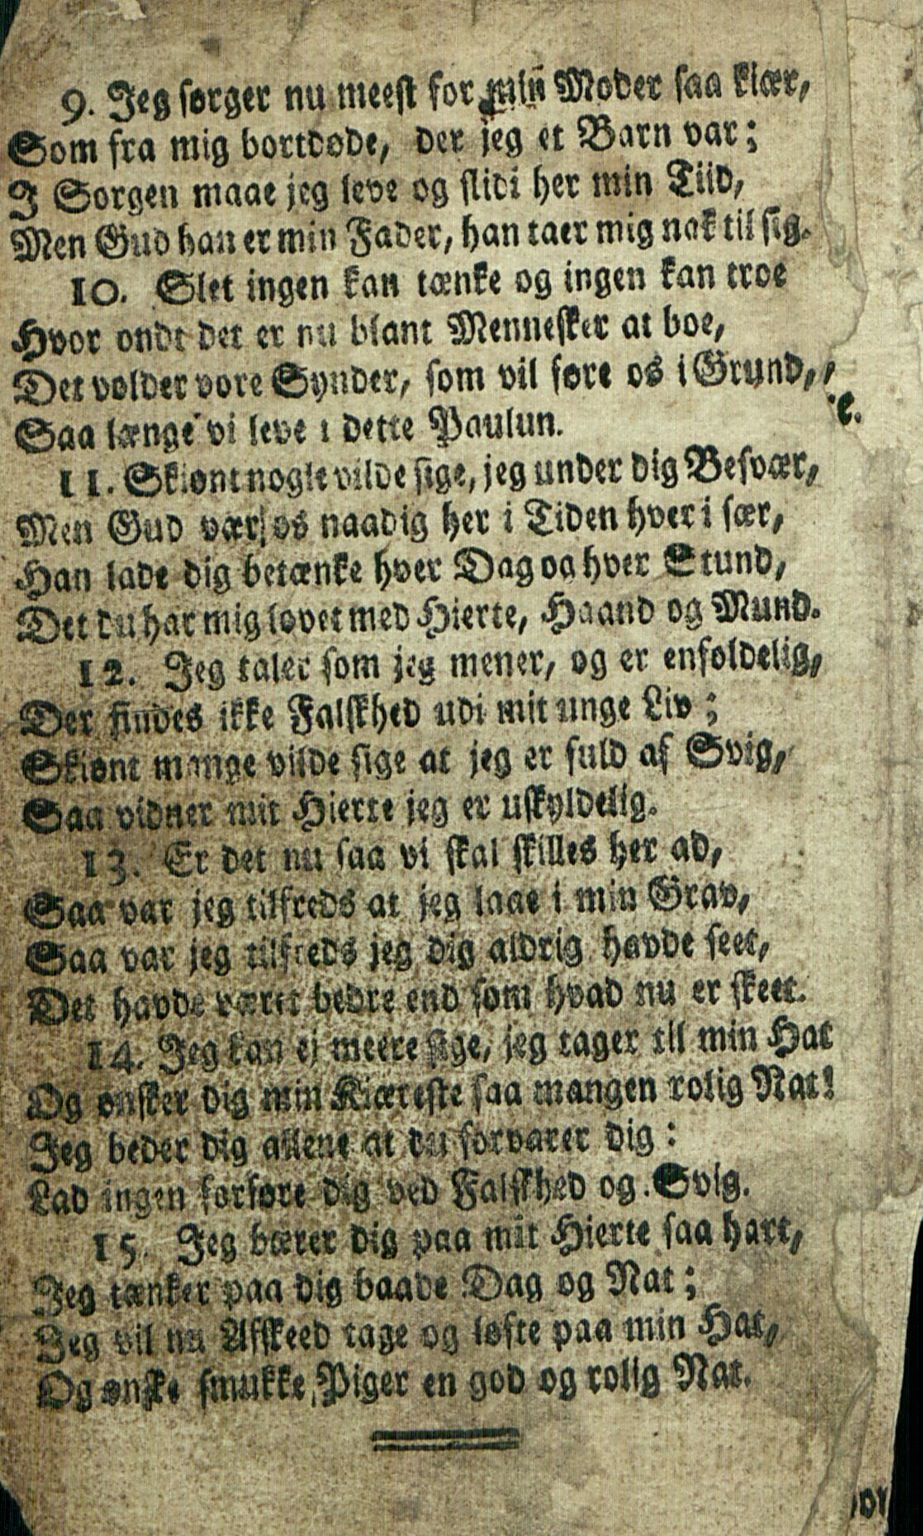 9. Jeg sørger nu meest for min Moder saa kiær,
Som fra mig bortdøde, der jeg et Barn var;
I Sorgen maae jeg leve og slidi her min Tiid,
Men Gud han er min Fader, han taer mig nok til sig.
10. Slet ingen kan tænke og ingen kan troe
Hvor ondt det er nu blant Mennesker at boe,
Det volder vore Synder, som vil føre os i Grund,
Saa længe vi leve i dette Paulun.
11. Skiønt nogle vilde sige, jeg under dig Besvær,
Men Gud vær os naadig her i Tiden hver i sær,
Han lade dig betænke hver Dag og hver Stund,
Det du har mig lovet med Hierte, Haand og Mund.
12. Jeg taler som jeg mener, og er enfoldelig,
Der findes ikke Falskhed udi mit unge Liv;
Skiønt mange vilde sige at jeg er fuld af Svig,
Saa vidner mit Hierte jeg er uskyldelig.
13. Er det nu saa vi skal skilles her ad,
Saa var jeg tilfreds at jeg laae i min Grav,
Saa var jeg tilfreds jeg dig aldrig havde seet,
Det havde været bedre end som hvad nu er skeet.
14. Jeg kan ej meere sige, jeg tager til min Hat
Og ønsker dig min Kiæreste saa mangen rolig Nat!
Jeg beder dig allene at du forvarer dig:
Lad ingen forføre dig ved Falskhed og Svig.
15. Jeg bærer dig paa mit Hierte saa hart,
Jeg tænker paa dig baade Dag og Nat;
Jeg vil nu Afskeed tage og løfte paa min Hat,
Og ønske smukke Piger en god og rolig Nat.